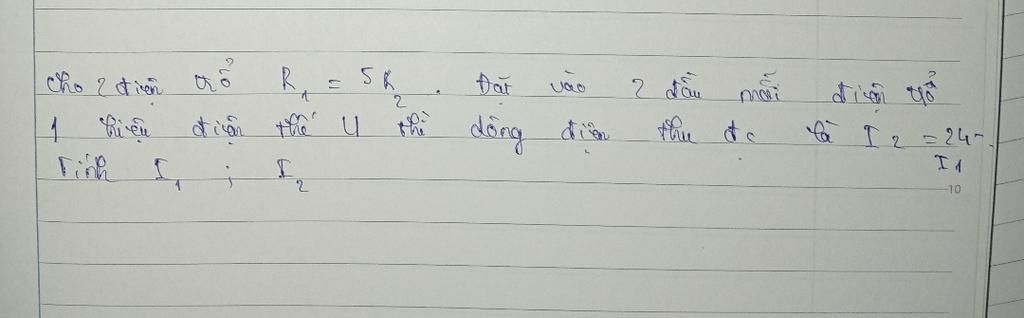 Cho 2 điện trở R₁ = 5R₂. Đặt vào 2 đầu mỗi điện trở
1 hiệu điện thế U thì dòng điện thu đc là I₂ = 24-
I₁
Tính I₁ ; I₂
10